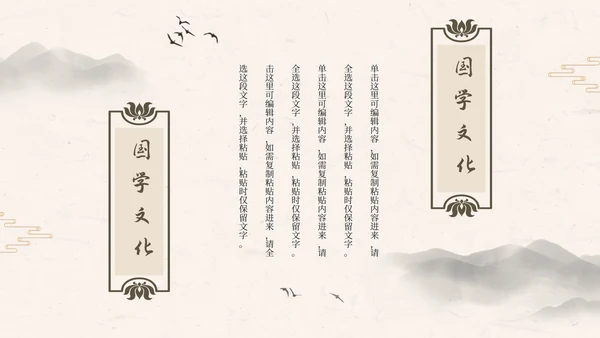 国学文化
单击这里可编辑内容，如需复制粘贴内容进来，请
全选这段文字，并选择粘贴，粘贴时仅保留文字。
单击这里可编辑内容，如需复制粘贴内容进来，请
全选这段文字，并选择粘贴，粘贴时仅保留文字。
击这里可编辑内容，如需复制粘贴内容进来，请全
选这段文字，并选择粘贴，粘贴时仅保留文字。
国学文化